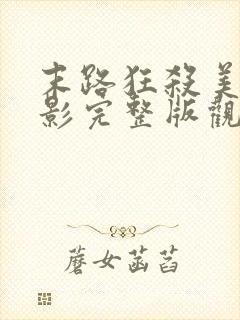 末路狂殺美
影完整版觀
蘑女菡萏